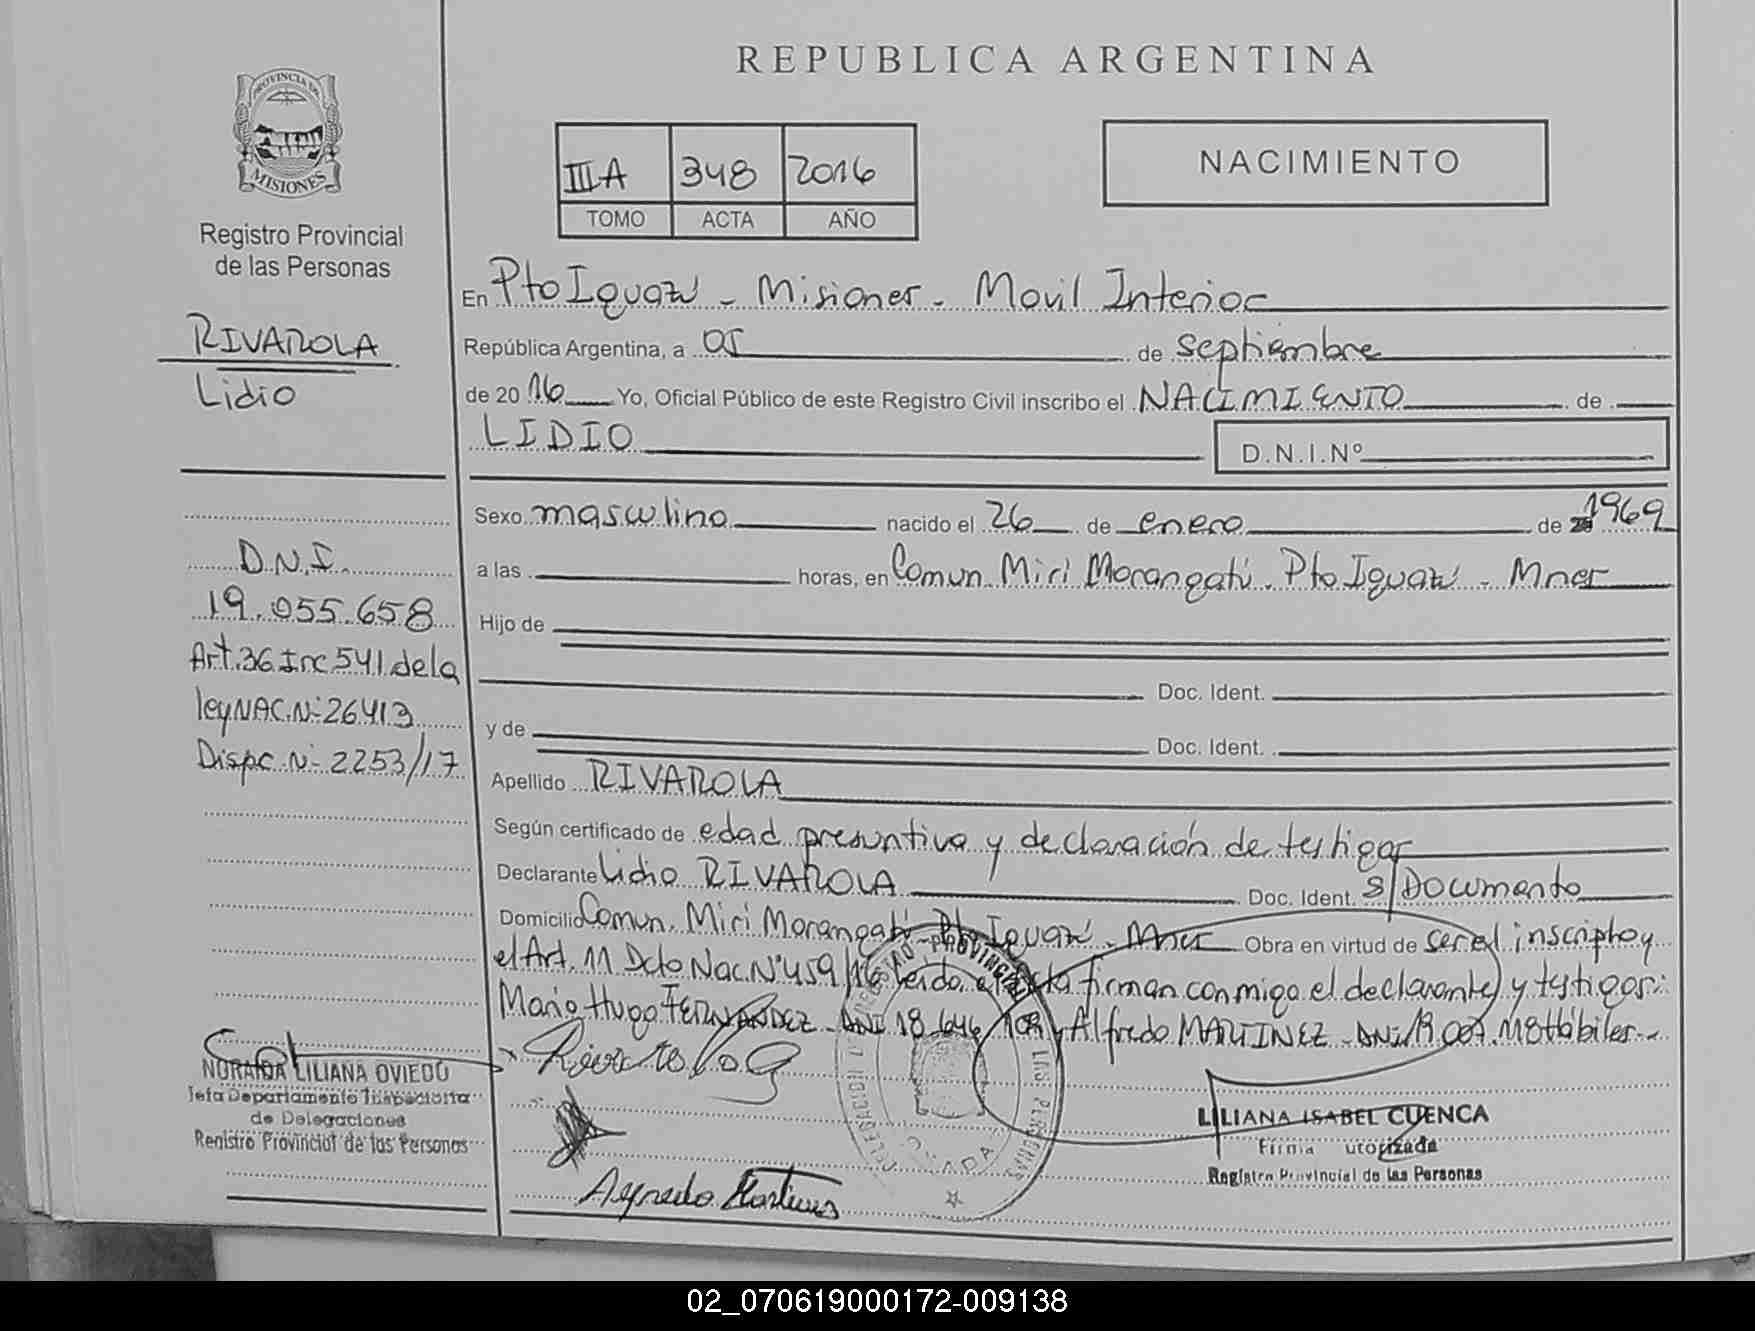 REPUBLICA ARGENTINA
PROVINCIA DE
MISIONES
Registro Provincial
de las Personas
RIVAROLA
Lidio
D.N.I.
19.055.658
Art.36 Inc 541 de la
ley NAC.Nº 26413
Dispc.Nº 2253/17
NORAIDA LILIANA OVIEDO
Jefa Departamento Inspectoria
de Delegaciones
Registro Provincial de las Personas
III A 348 2016
TOMO ACTA AÑO
NACIMIENTO
En Pto Iguazú - Misiones - Movil Interior
República Argentina, a 05 de septiembre
de 2016 Yo, Oficial Público de este Registro Civil inscribo el NACIMIENTO de
LIDIO D.N.I.Nº
Sexo masculino nacido el 26 de enero de 1969
a las horas, en Comun. Miri Marangatú. Pto Iguazú - Mnes
Hijo de
Doc. Ident.
y de Doc. Ident.
Apellido RIVAROLA
Según certificado de edad presuntiva y declaración de testigos
Declarante Lidio RIVAROLA Doc. Ident. S/Documento
Domicilio Comun. Miri Marangatú Pto Iguazú - Mnes Obra en virtud de ser el inscripto y
el Art. 11 Dcto Nac.Nº 459/16 leida el acta firman conmigo el declarante y testigos:
Mario Hugo FERNANDEZ - DNI 18.646.108 y Alfredo MARTINEZ - DNI 19.007.118 Hábiles.-
Alfredo Martines
LILIANA ISABEL CUENCA
Firma utorizada
Registro Provincial de las Personas
02_070619000172-009138